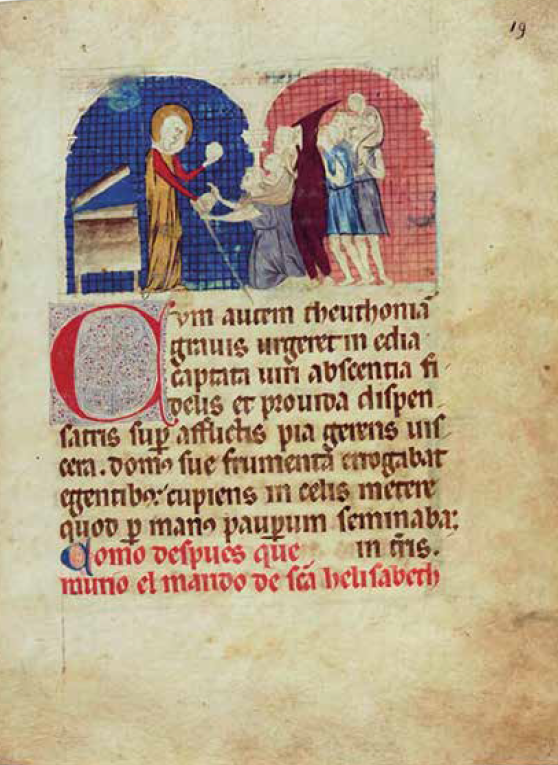 19
Cvm autem theuthoniā
grauis urgeret in edia
captata uiri absentia fi
delis et prouida dispen
satris sup̱ afflictis pia gerens uis
cera. domꝰ sue frumenta erogabat
egentibꝰ: cupiens in celis metere
quod p̱ manꝰ paup̱um seminabat
in t̄ris.
Como despues que
murio el marido de sc̄a helisabeth